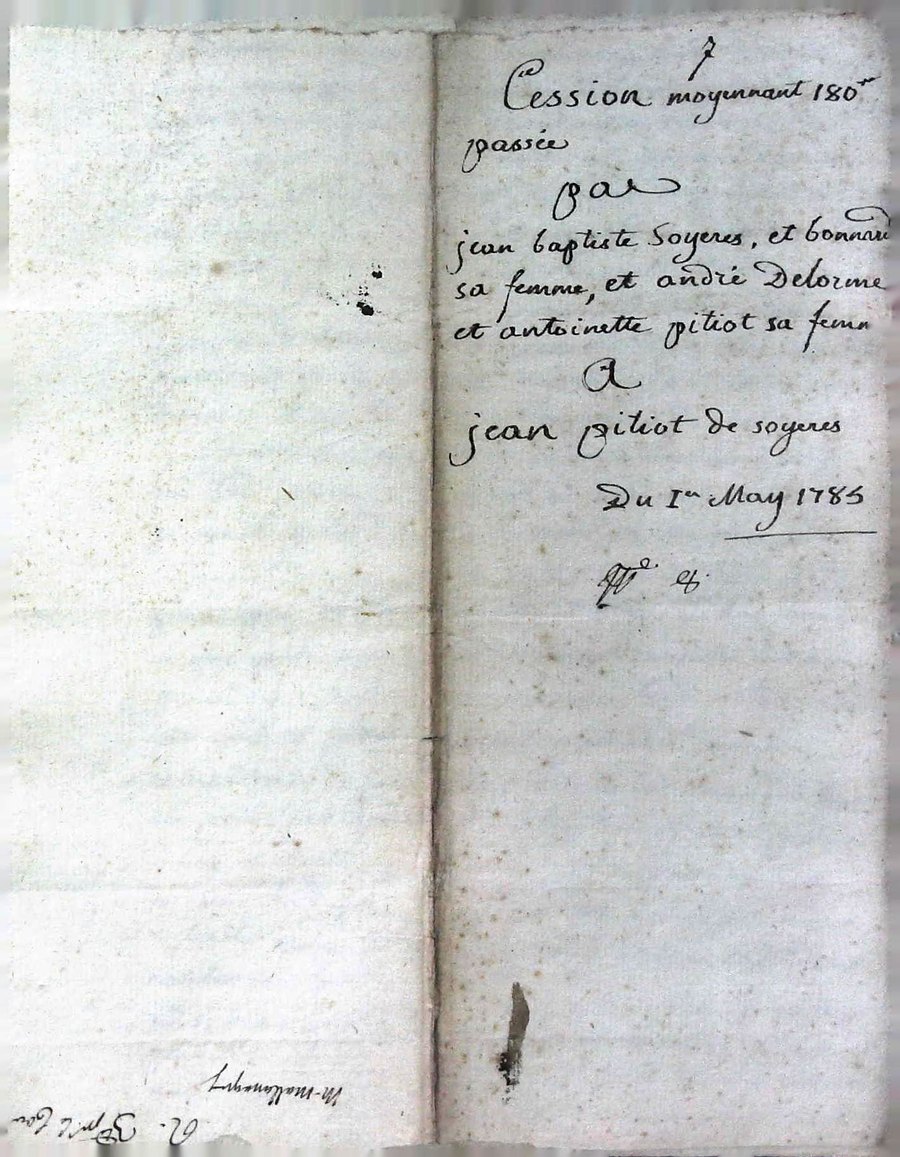 7
Cession moyennant 180
passée
par
jean baptiste Soyeres, et bonnard
sa femme, et andré Delorme
et antoinette pitiot sa femm
A
jean pitiot de soyeres
Du 1er May 1785